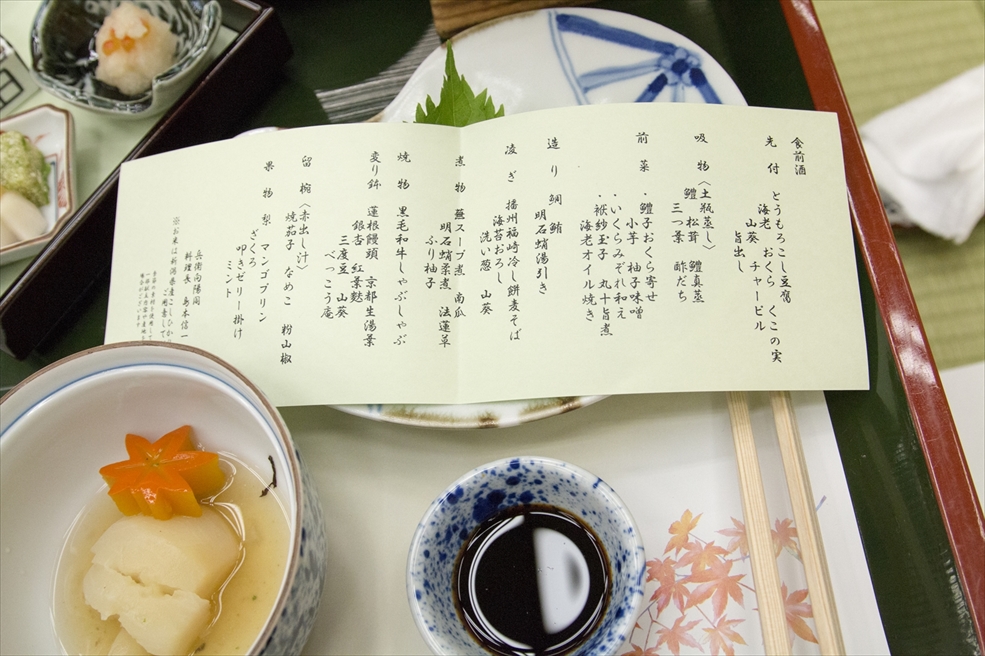 食前酒
先付 とうもろこし豆腐 くこの実
海老 おくら チャービル
山葵 旨出し
吸物〈土瓶蒸し〉
鱧 松茸 鱧真蒸
三つ葉 酢だち
前菜 ・鱧子おくら寄せ
小芋 柚子味噌
・いくらみぞれ和え
・袱紗玉子 丸十旨煮
海老オイル焼き
造り 鯛 鮪
明石蛸湯引き
凌ぎ 播州福崎冷し餅麦そば
海苔おろし
洗い葱 山葵
煮物 蕪スープ煮 南瓜
明石蛸柔煮 法蓮草
ふり柚子
焼物 黒毛和牛しゃぶしゃぶ
変り鉢 蓮根饅頭 京都生湯葉
銀杏 紅葉麩
三度豆 山葵
べっこう庵
留椀〈赤出し汁〉
焼茄子 なめこ 粉山椒
果物 梨 マンゴプリン
ざくろ
叩きゼリー掛け
ミント
兵衛向陽閣
料理長 島本信一
※お米は新潟県産こしひか
ご用意して